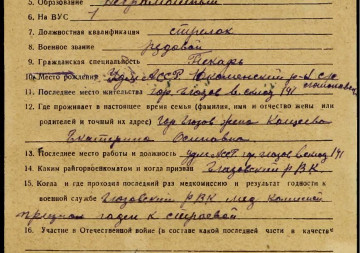 5. Образование неграмотный
6. На ВУС 1
7. Должностная квалификация стрелок
8. Военное звание рядовой
9. Гражданская специальность Пекарь
10. Место рождения Удм АССР Юкаменский р-н с/с
11. Последнее место жительства гор Глазов
12. Где проживает в настоящее время семья (фамилия, имя и отчество жены или
родителей и точный их адрес) гор Глазов жена
Екатерина Осиповна
13. Последнее место работы и должность Удм АССР гор Глазов
14. Каким райгорвоенкоматом и когда призван Глазовский РВК
15. Когда и где проходил последний раз медкомиссию и результат годности к
военной службе Глазовский РВК мед комиссия
признан годен к строевой
16. Участие в Отечественной войне (в составе какой последней части и качестве